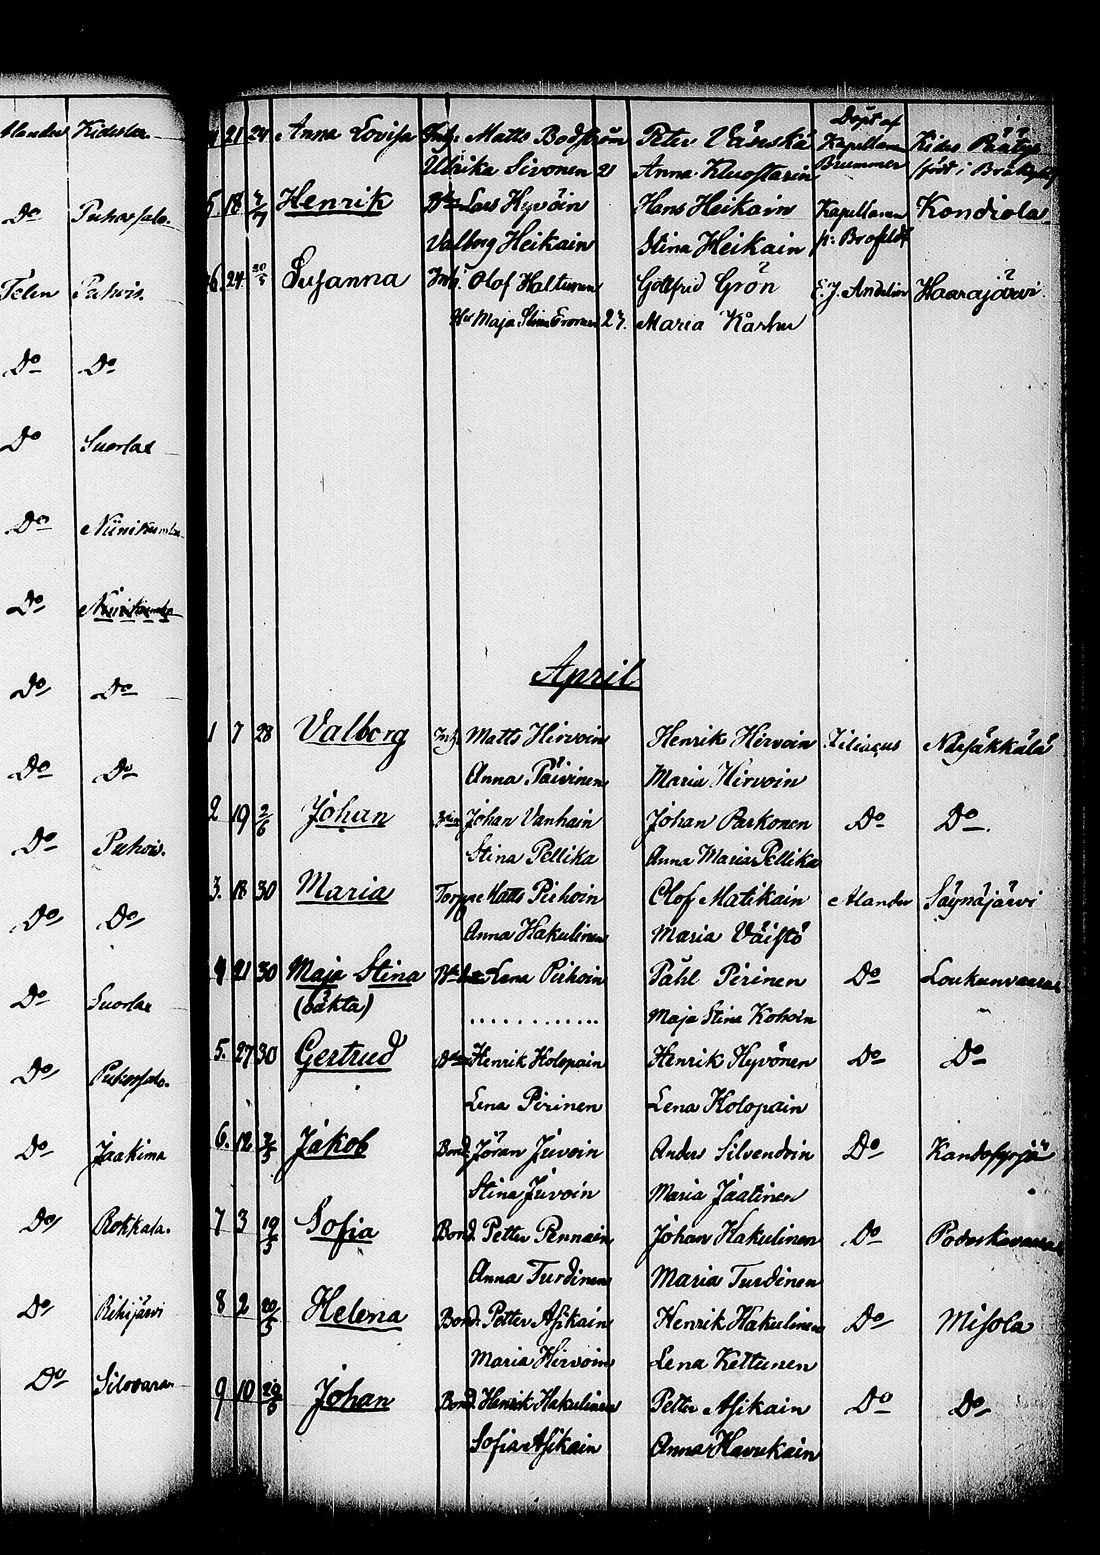 Kides
Do Puhossalo.
Puhois.
Do Do
Do Suorlax
Do Niinikumbu
Do
Do Do
Do Do
Do Puhois.
Do Do
Do Suorlax
Do Puhossalo.
Do Jaakima
Do Rokkala.
Do Rihijärvi
Do Silovara
21 24 Anna Lovisa Inh. Matts Bodström Peter Väneskä Döpt af Kapellanen Brummer Kides
Ulrika Sivonen 21 Anna Kluostarin född i
18 Henrik Lars Hyvöin Hans Heikain Kapellanen Kondiola
Valborg Heikain Stina Heikain p. Brofeldt
24 20/5 Susanna Inh. Olof Halturen Gottfrid Grön E. J. Andelin Haarajärvi.
Maja Stina 23. Maria
April
1 7 28 Valborg Inh. Matts Hirvoin Henrik Hirvoin Ziliacus Närsäkkälä
Anna Päivinen Maria Hirvoin
2 19 2/6 Johan Johan Vanhain Johan Parkonen Do Do.
Stina Pellika Anna Maria Pellika
3. 18 30 Maria Torp. Matts Pirhoin Olof Matikain Alander Säynäjärvi
Anna Hakulinen Maria Väistö
4 21 30 Maja Stina Lena Pirhoin Påhl Pirinen Do Loukunvaara
(oäkta) ............. Maja Stina Kohoin
5. 27 30 Gertrud Henrik Holopain Henrik Hyvönen Do Do
Lena Pirinen Lena Holopain
6. 12 3/5 Jakob Bond. Jöran Juvoin Anders Silvendoin Do
Stina Juvoin Maria Jaatinen
7 3 19/5 Sofia Bond. Petter Pennain Johan Hakulinen Do
Anna Turdinen Maria Turdinen
8 2 20/5 Helena Bond. Petter Asikain Henrik Hakulinen Do Misola
Maria Hirvoin Lena Kettunen
9 10 20/5 Johan Bond. Henrik Hakulinen Petter Asikain Do Do
Sofia Asikain Anna Havukain